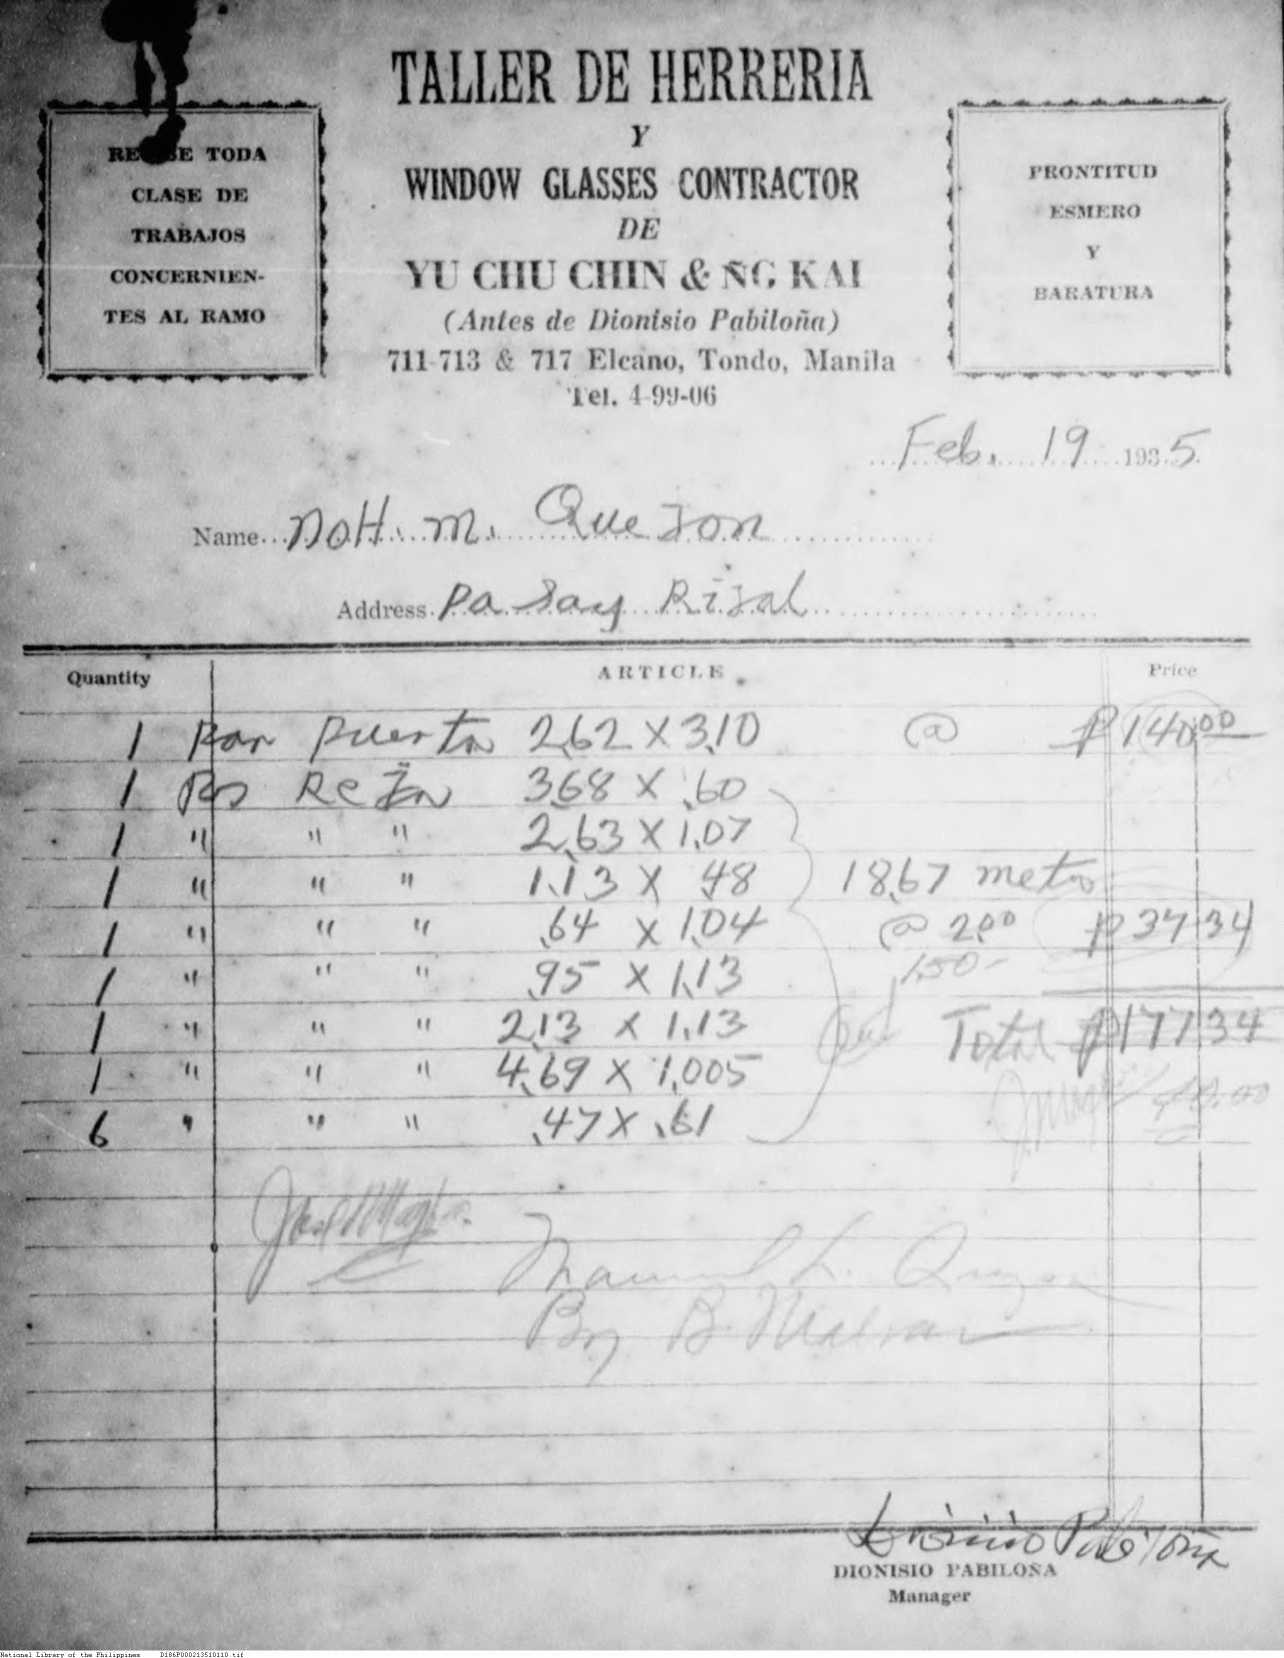 TALLER DE HERRERIA
Y
WINDOW GLASSES CONTRACTOR
DE
YU CHU CHIN & ÑG KAI
(Antes de Dionisio Pabiloña)
711-713 & 717 Elcano, Tondo, Manila
Tel. 4-99-06
TODA
CLASE DE
TRABAJOS
CONCERNIEN-
TES AL RAMO
PRONTITUD
ESMERO
Y
BARATURA
Feb. 19 1935
Name M. Quezon
Address Pasay Rizal
Quantity ARTICLE Price
1 Par Puerta 2.62 X 3.10 @ ₱140.00
1 Reja 3.68 X .60
1 " " " 2.63 X 1.07
1 " " " 1.13 X .48 18.67 metro
1 " " " .64 X 1.04 @ 2.00 ₱37.34
1 " " " .95 X 1.13 1.50-
1 " " " 2.13 X 1.13 Total ₱177.34
1 " " " 4.69 X 1.005
6 " " " .47 X .61
Manuel L. Quezon
By B.
Dionisio Pabiloña
DIONISIO PABILOÑA
Manager
National Library of the Philippines D186P000213510110.tif